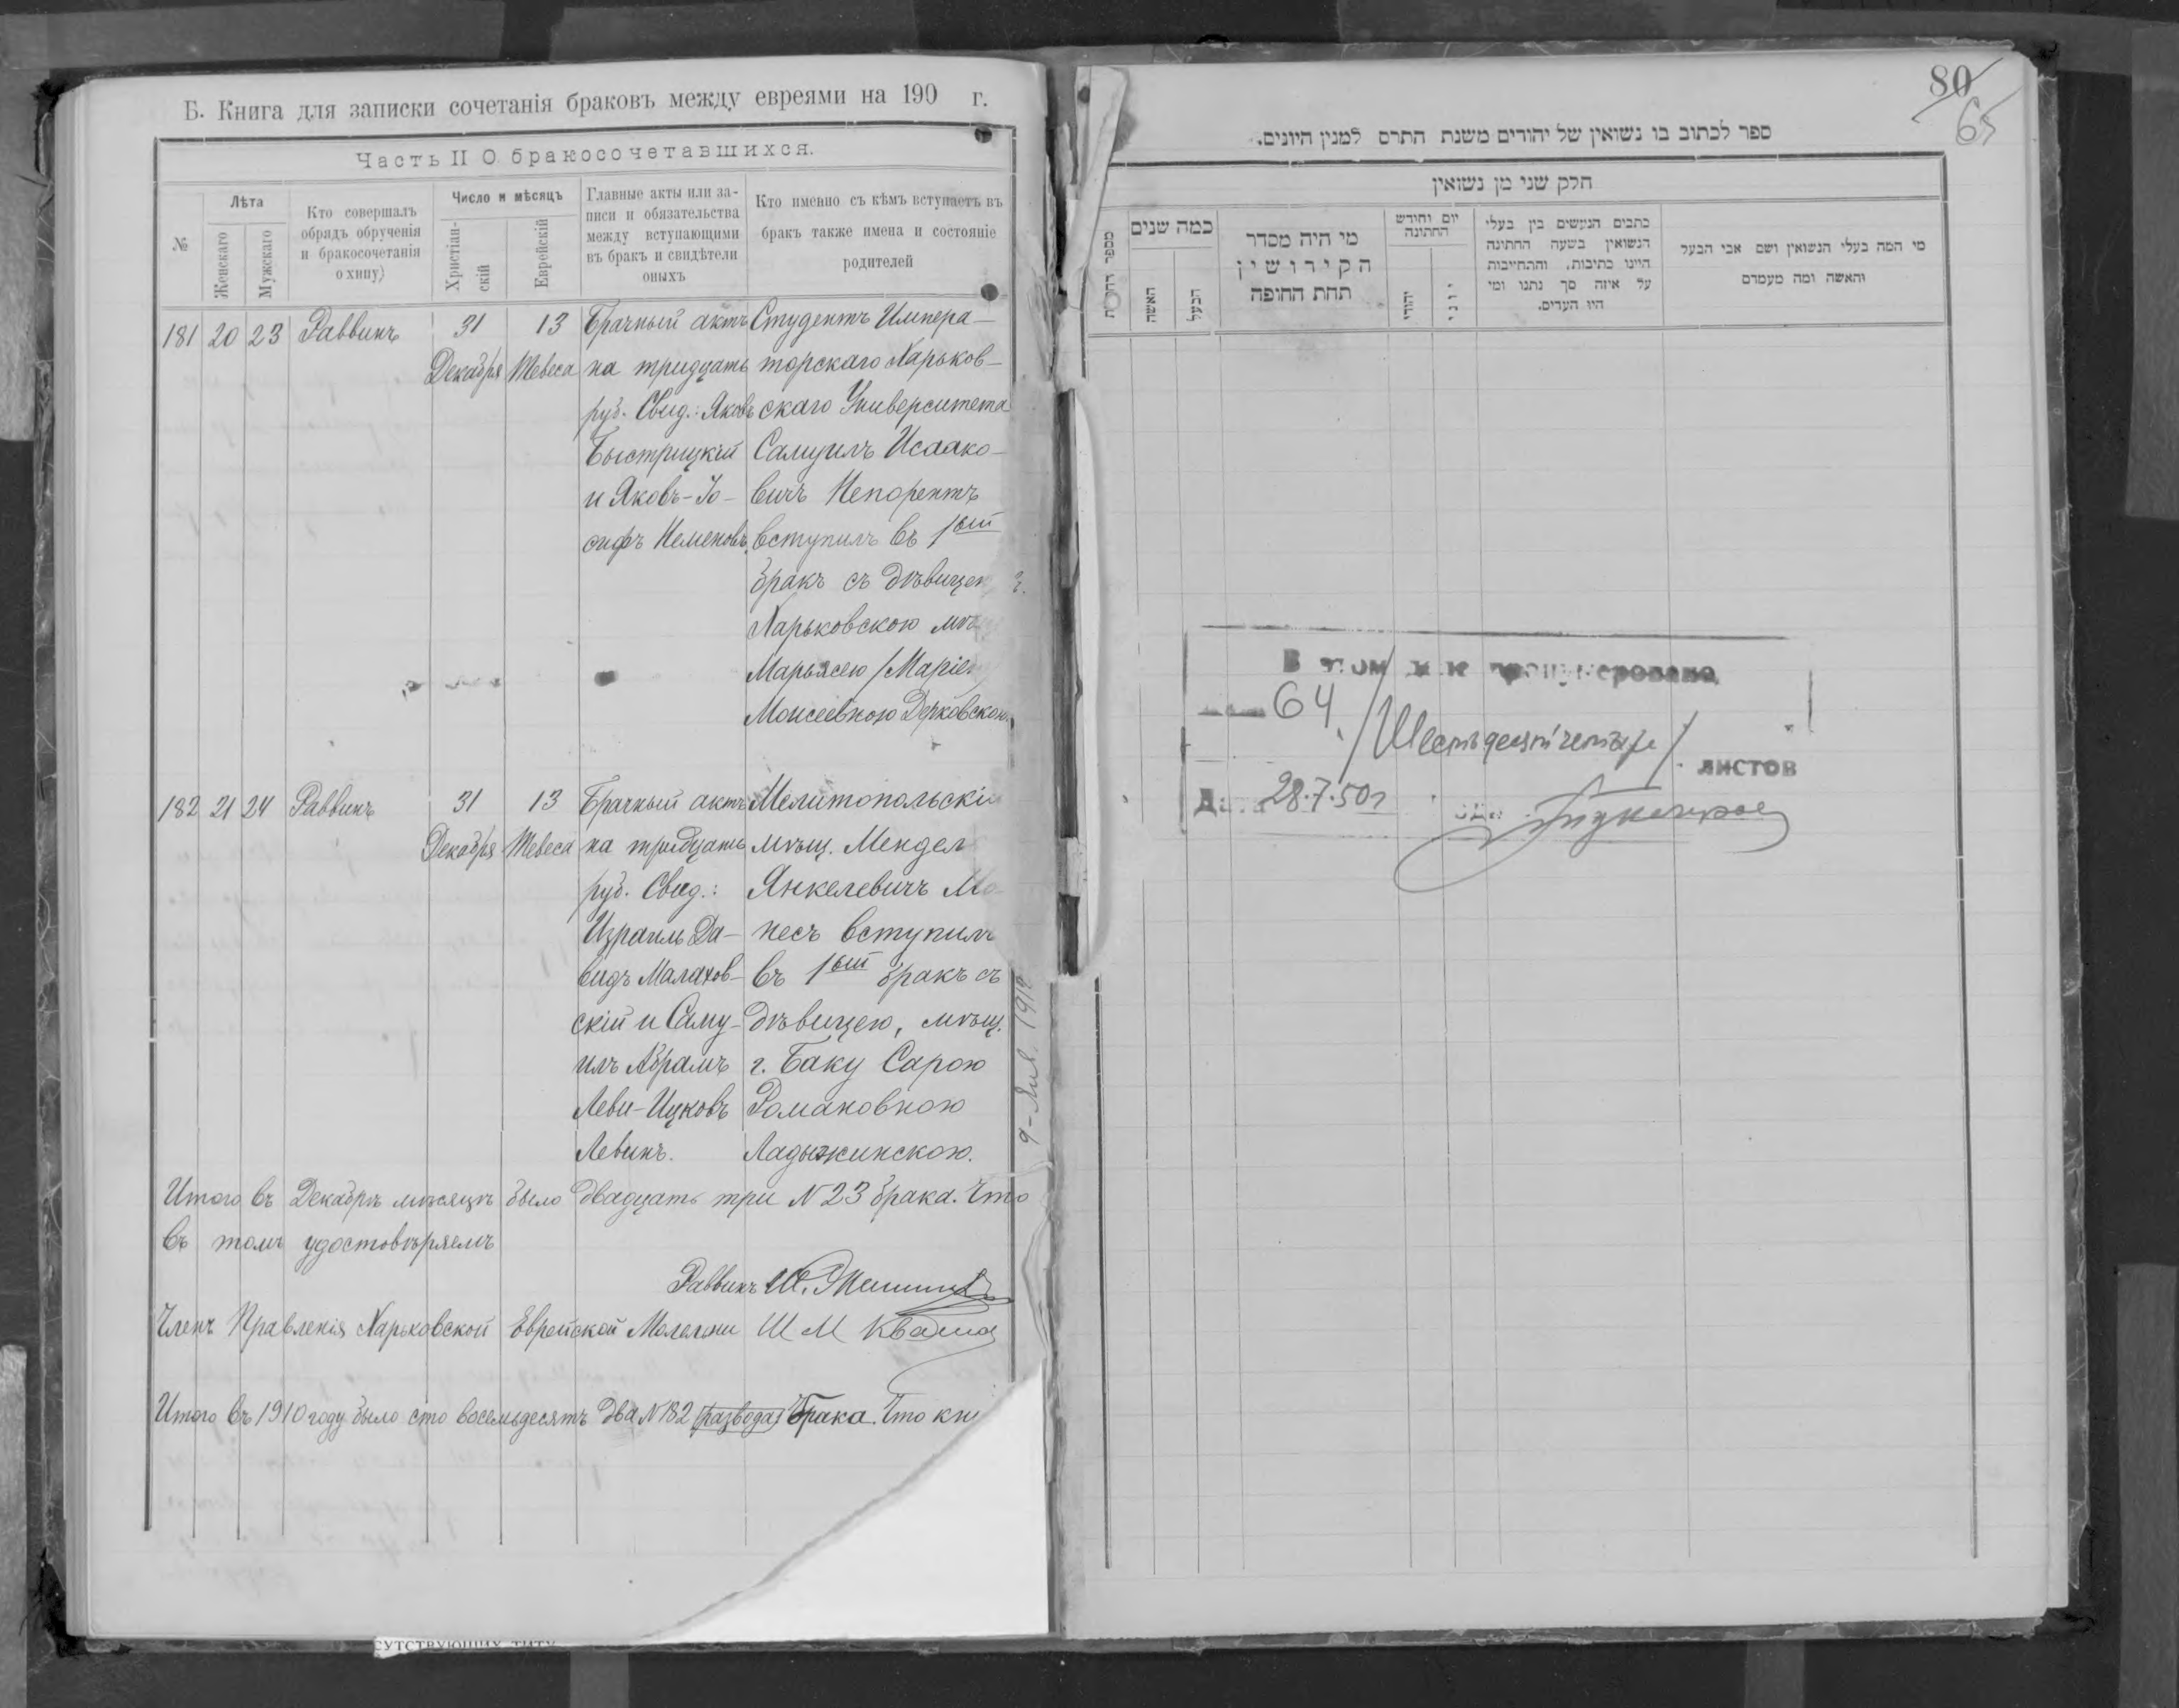 Б. Книга для записки сочетанія браковъ между евреями на 190 г.
Часть II О бракосочетавшихся.
№
Лѣта
Женскаго
Мужскаго
Кто совершалъ
обрядъ обрученія
и бракосочетанія
о хипу)
Число и мѣсяцъ
Христіан-
скій
Еврейскій
Главные акты или за-
писи и обязательства
между вступающими
въ бракъ и свидѣтели
оныхъ
Кто именно съ кѣмъ вступаетъ въ
бракъ также имена и состояніе
родителей
181 20 23 Раввинъ 31 13 Брачный актъ Студентъ Импера-
Декабря Тевеса на тридцать торскаго Харьков-
руб. Свид.: Яковъ скаго Университета
Быстрицкій Самуилъ Исаако-
и Яковъ-Іо- вичъ Непорентъ
сифъ Неменовъ. вступилъ въ 1ый
бракъ съ дѣвицею
Харьковскою мѣщ
Марьясею /Маріею
Моисеевною Дерковскою.
182 21 24 Раввинъ 31 13 Брачный актъ Мелитопольскій
Декабря Тевеса на тридцать мѣщ. Мендель
руб. Свид.: Янкелевичъ Мо-
Израиль Да- несъ вступилъ
видъ Малахов- въ 1ый бракъ съ
скій и Саму- дѣвицею, мѣщ.
илъ Абрамъ г. Баку Сарою
Леви-Ицковъ Романовною
Левинъ. Ладыжинскою.
Итого въ Декабрѣ мѣсяцѣ было двадцать три N 23 брака. Что
въ томъ удостовѣряемъ
Раввинъ
Членъ Правленія Харьковской Еврейской Молельни Ш М Кваша
Итого въ 1910 году было сто восемьдесятъ два N 182 развода брака. Что кни
1912
сутствующих титу
80
65
ספר לכתוב בו נשואין של יהודים משנת התרס למנין היונים.
חלק שני מן נשואין
כמה שנים
האשה
הבעל
מי היה מסדר
הקידושין
תחת החופה
יום וחודש
החתונה
יהודי
יוני
כתבים הנעשים בין בעלי
הנשואין בשעה החתונה
היינו כתובות, והתחייבות
על איזה סך נתנו ומי
היו העדים.
מי המה בעלי הנשואין ושם אבי הבעל
והאשה ומה מעמדם
В этом пронумеровано
64 /Шестьдесят четыре/ листов
Дата 28.7.50г